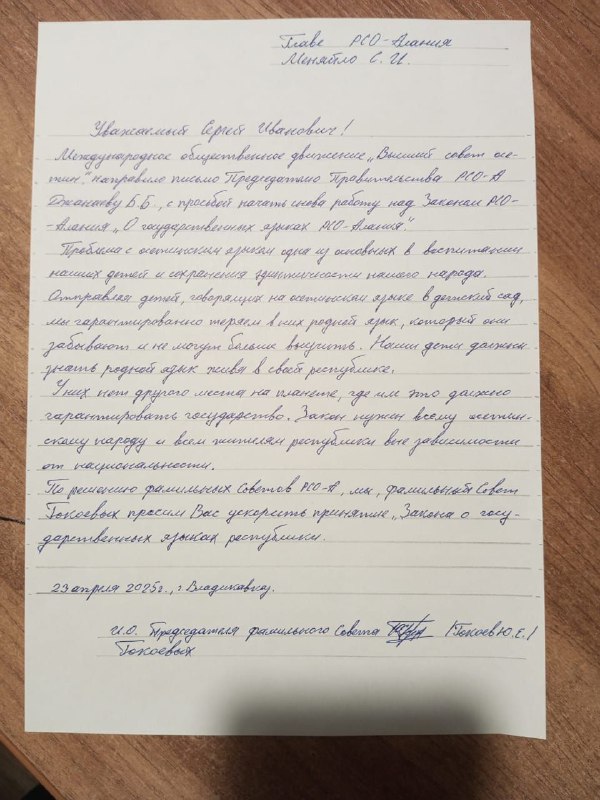 Главе РСО-Алания
Меняйло С. И.
Уважаемый Сергей Иванович!
Международное общественное движение „Высший совет осе-
тин", направило письмо Председателю Правительства РСО-А
Джанаеву Б.Б., с просьбой начать снова работу над Законом РСО-
Алания „О государственных языках РСО-Алания"
Проблема с осетинским языком одна из основных в воспитании
наших детей и сохранения идентичности нашего народа.
Отправляя детей, говорящих на осетинском языке в детский сад,
мы гарантированно теряем в них родной язык, который они
забывают и не могут больше выучить. Наши дети должны
знать родной язык живя в своей республике.
У них нет другого места на планете, где им это должно
гарантировать государство. Закон нужен всему осетин-
скому народу и всем жителям республики вне зависимости
от национальности.
По решению фамильных Советов РСО-А, мы, фамильный Совет
Гокоевых просим Вас ускорить принятие „Закона о госу-
дарственных языках республики.
23 апреля 2025г., г. Владикавказ.
И.О. Председателя фамильного Совета /Гокоев Ю.Е./
Гокоевых